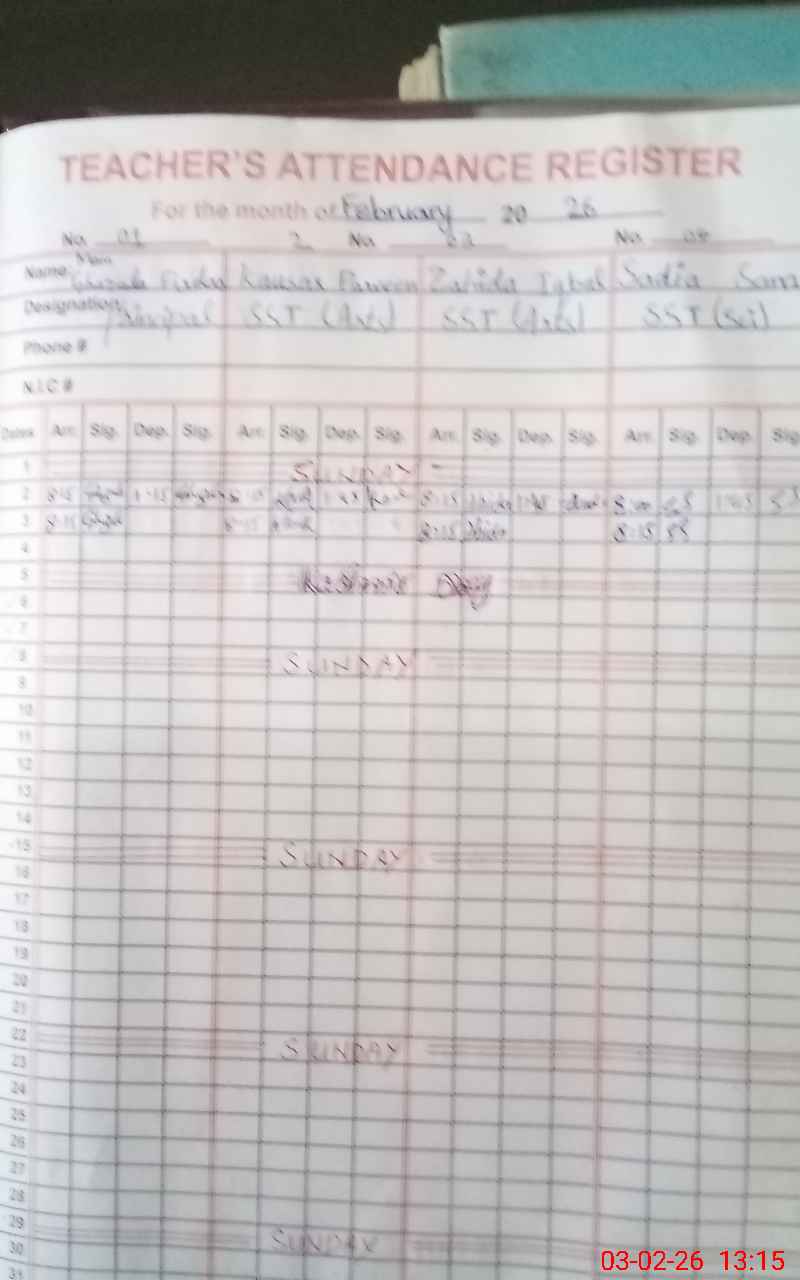 TEACHER'S ATTENDANCE REGISTER
For the month of February 20 26
No. 01 2 No. No. 04
Name Kausar Parveen Zahida Iqbal Sadia
Designation Principal SST (Arts) SST (Arts) SST (Sci)
Phone #
N.I.C #
Dates Arr. Sig. Dep. Sig. Arr. Sig. Dep. Sig. Arr. Sig. Dep. Sig. Arr. Sig. Dep. Sig
1 SUNDAY
2 8:15 1:45 8:15 1:45
3 8:15 8:15 8:15 8:15 SS
4
5 Kashmir Day
6
7
8 SUNDAY
9
10
11
12
13
14
15 SUNDAY
16
17
18
19
20
21
22 SUNDAY
23
24
25
26
27
28
29 SUNDAY
30
31
03-02-26 13:15